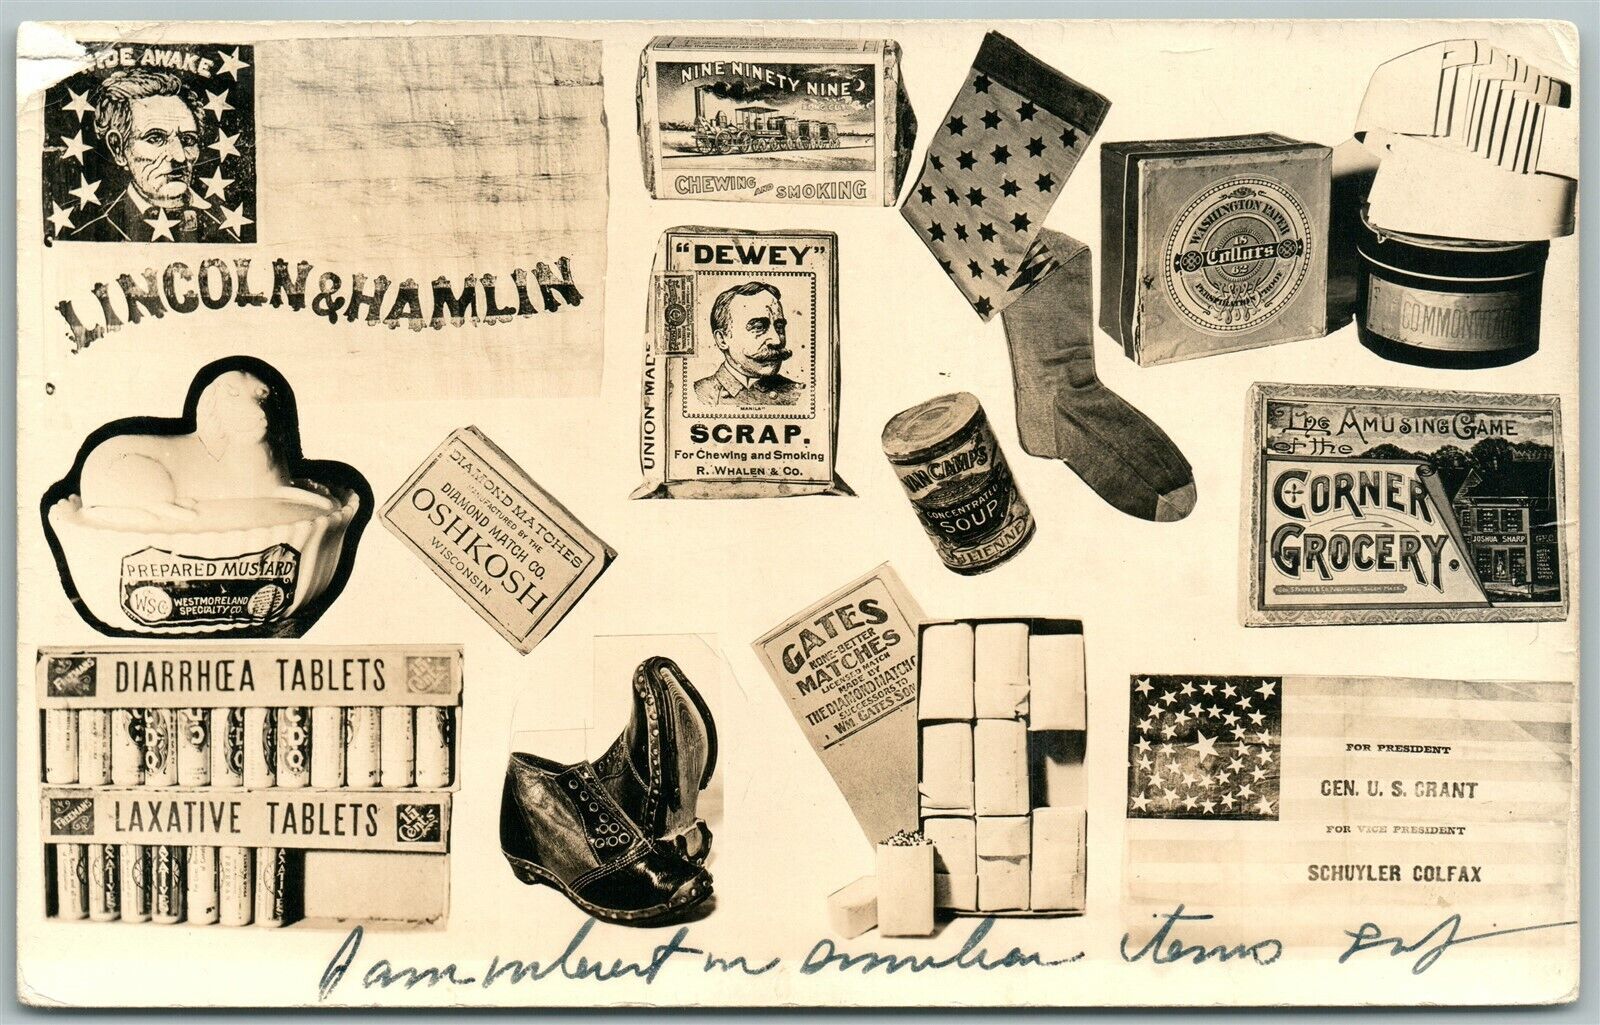 IDE AWAKE
LINCOLN & HAMLIN
NINE NINETY NINE
CHEWING AND SMOKING
"DEWEY"
UNION MADE
"MANILA"
SCRAP.
For Chewing and Smoking
R. WHALEN & CO.
WASHINGTON PAPER
18 Collars 62
PERSPIRATION PROOF
COMMONWEALTH
VAN CAMP'S
CONCENTRATED
SOUP.
JULIENNE
The AMUSING GAME
of the
CORNER
GROCERY.
JOSHUA SHARP
GEO. S. PARKER & CO. PUBLISHERS, SALEM, MASS.
PREPARED MUSTARD
WSCo
WESTMORELAND
SPECIALTY CO.
DIAMOND MATCHES
MANUFACTURED BY THE
DIAMOND MATCH CO.
OSHKOSH
WISCONSIN
GATES
NONE-BETTER
MATCHES
LICENSED MATCH
MADE BY
THE DIAMOND MATCH C
SUCCESSORS TO
WM. GATES SON
FREEMANS DIARRHŒA TABLETS
FREEMANS LAXATIVE TABLETS 15 Cents
FOR PRESIDENT
GEN. U. S. GRANT
FOR VICE PRESIDENT
SCHUYLER COLFAX
I am interest in similar items